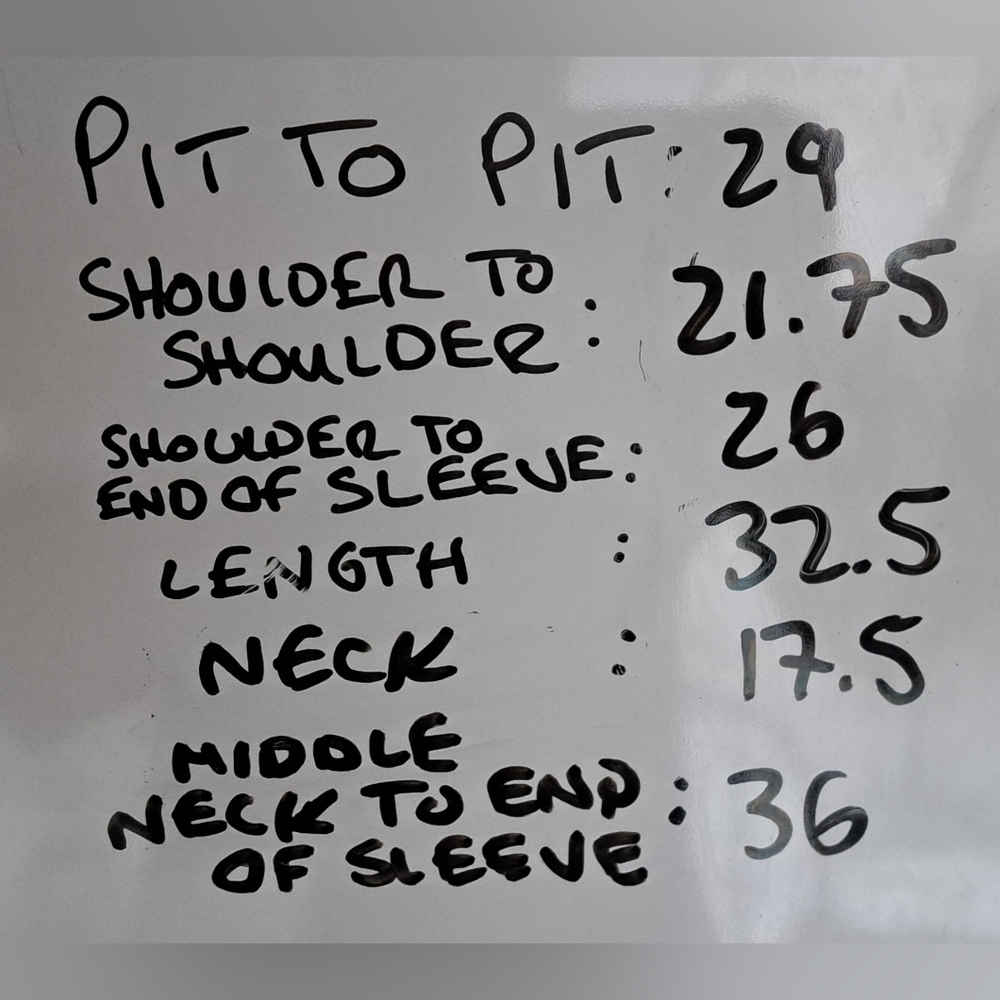 PIT TO PIT: 29
SHOULDER TO
SHOULDER : 21.75
SHOULDER TO
END OF SLEEVE: 26
LENGTH : 32.5
NECK : 17.5
MIDDLE
NECK TO END : 36
OF SLEEVE